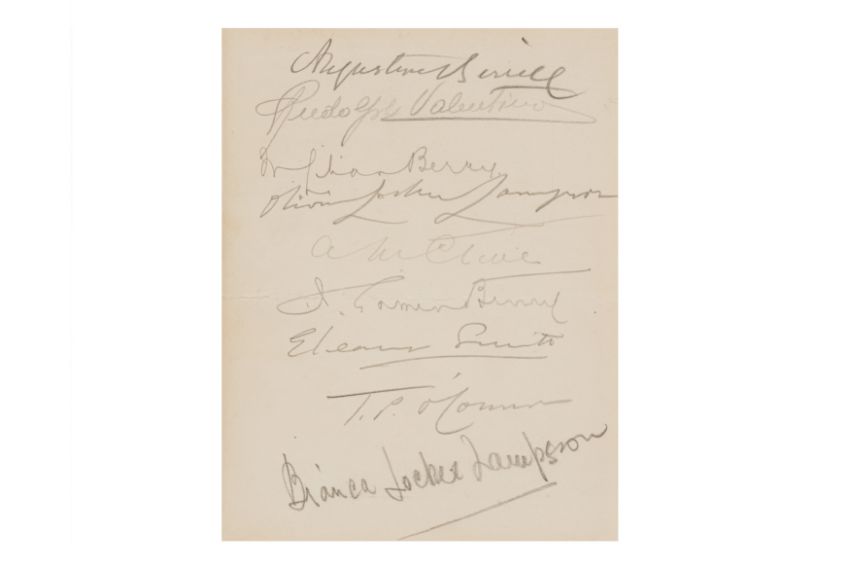 Augustine Birrell
Rudolph Valentino
Berry
Olivia Locker Lampson
A
J. Gomer Berry
Eleanor Smith
T.P. O'Connor
Bianca Locker Lampson